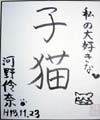 私の大好きな♥
子猫
河野伶奈
H15.11.23